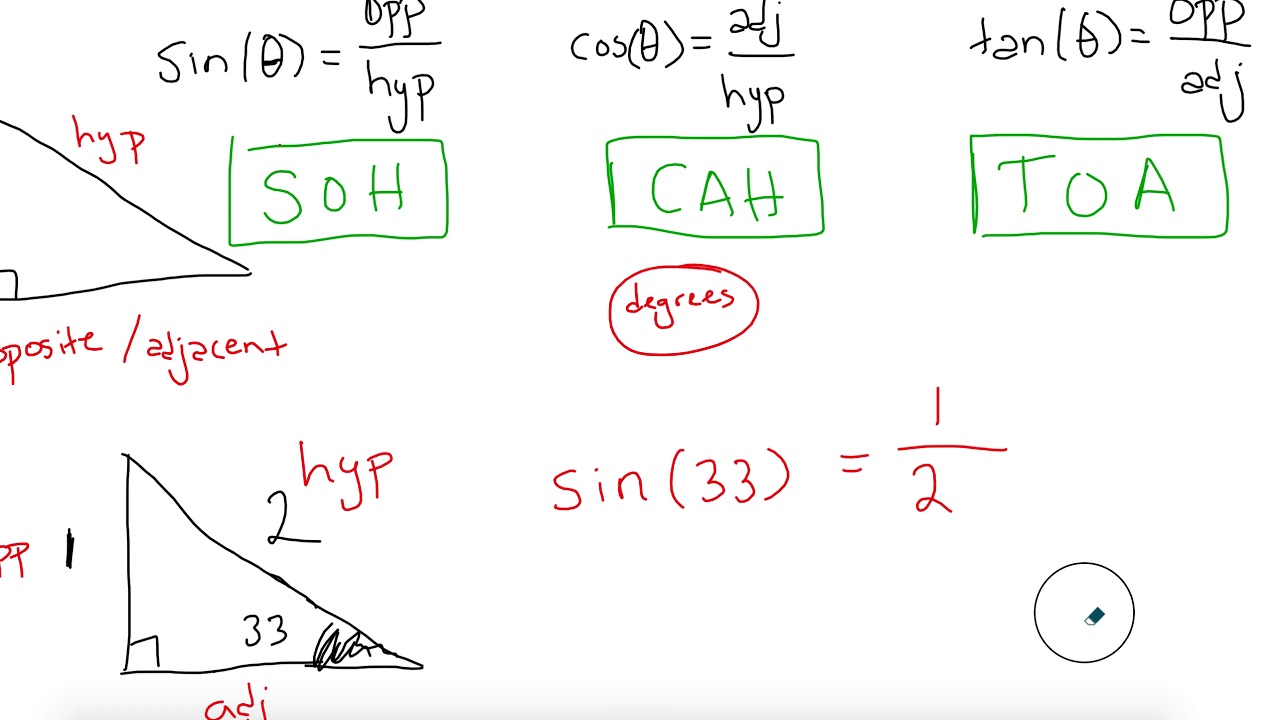 sin(θ) = opp/hyp
cos(θ) = adj/hyp
tan(θ) = opp/adj
hyp
SOH
CAH
TOA
degrees
pposite / adjacent
sin(33) = 1/2
hyp
2
pp 1
33
adj